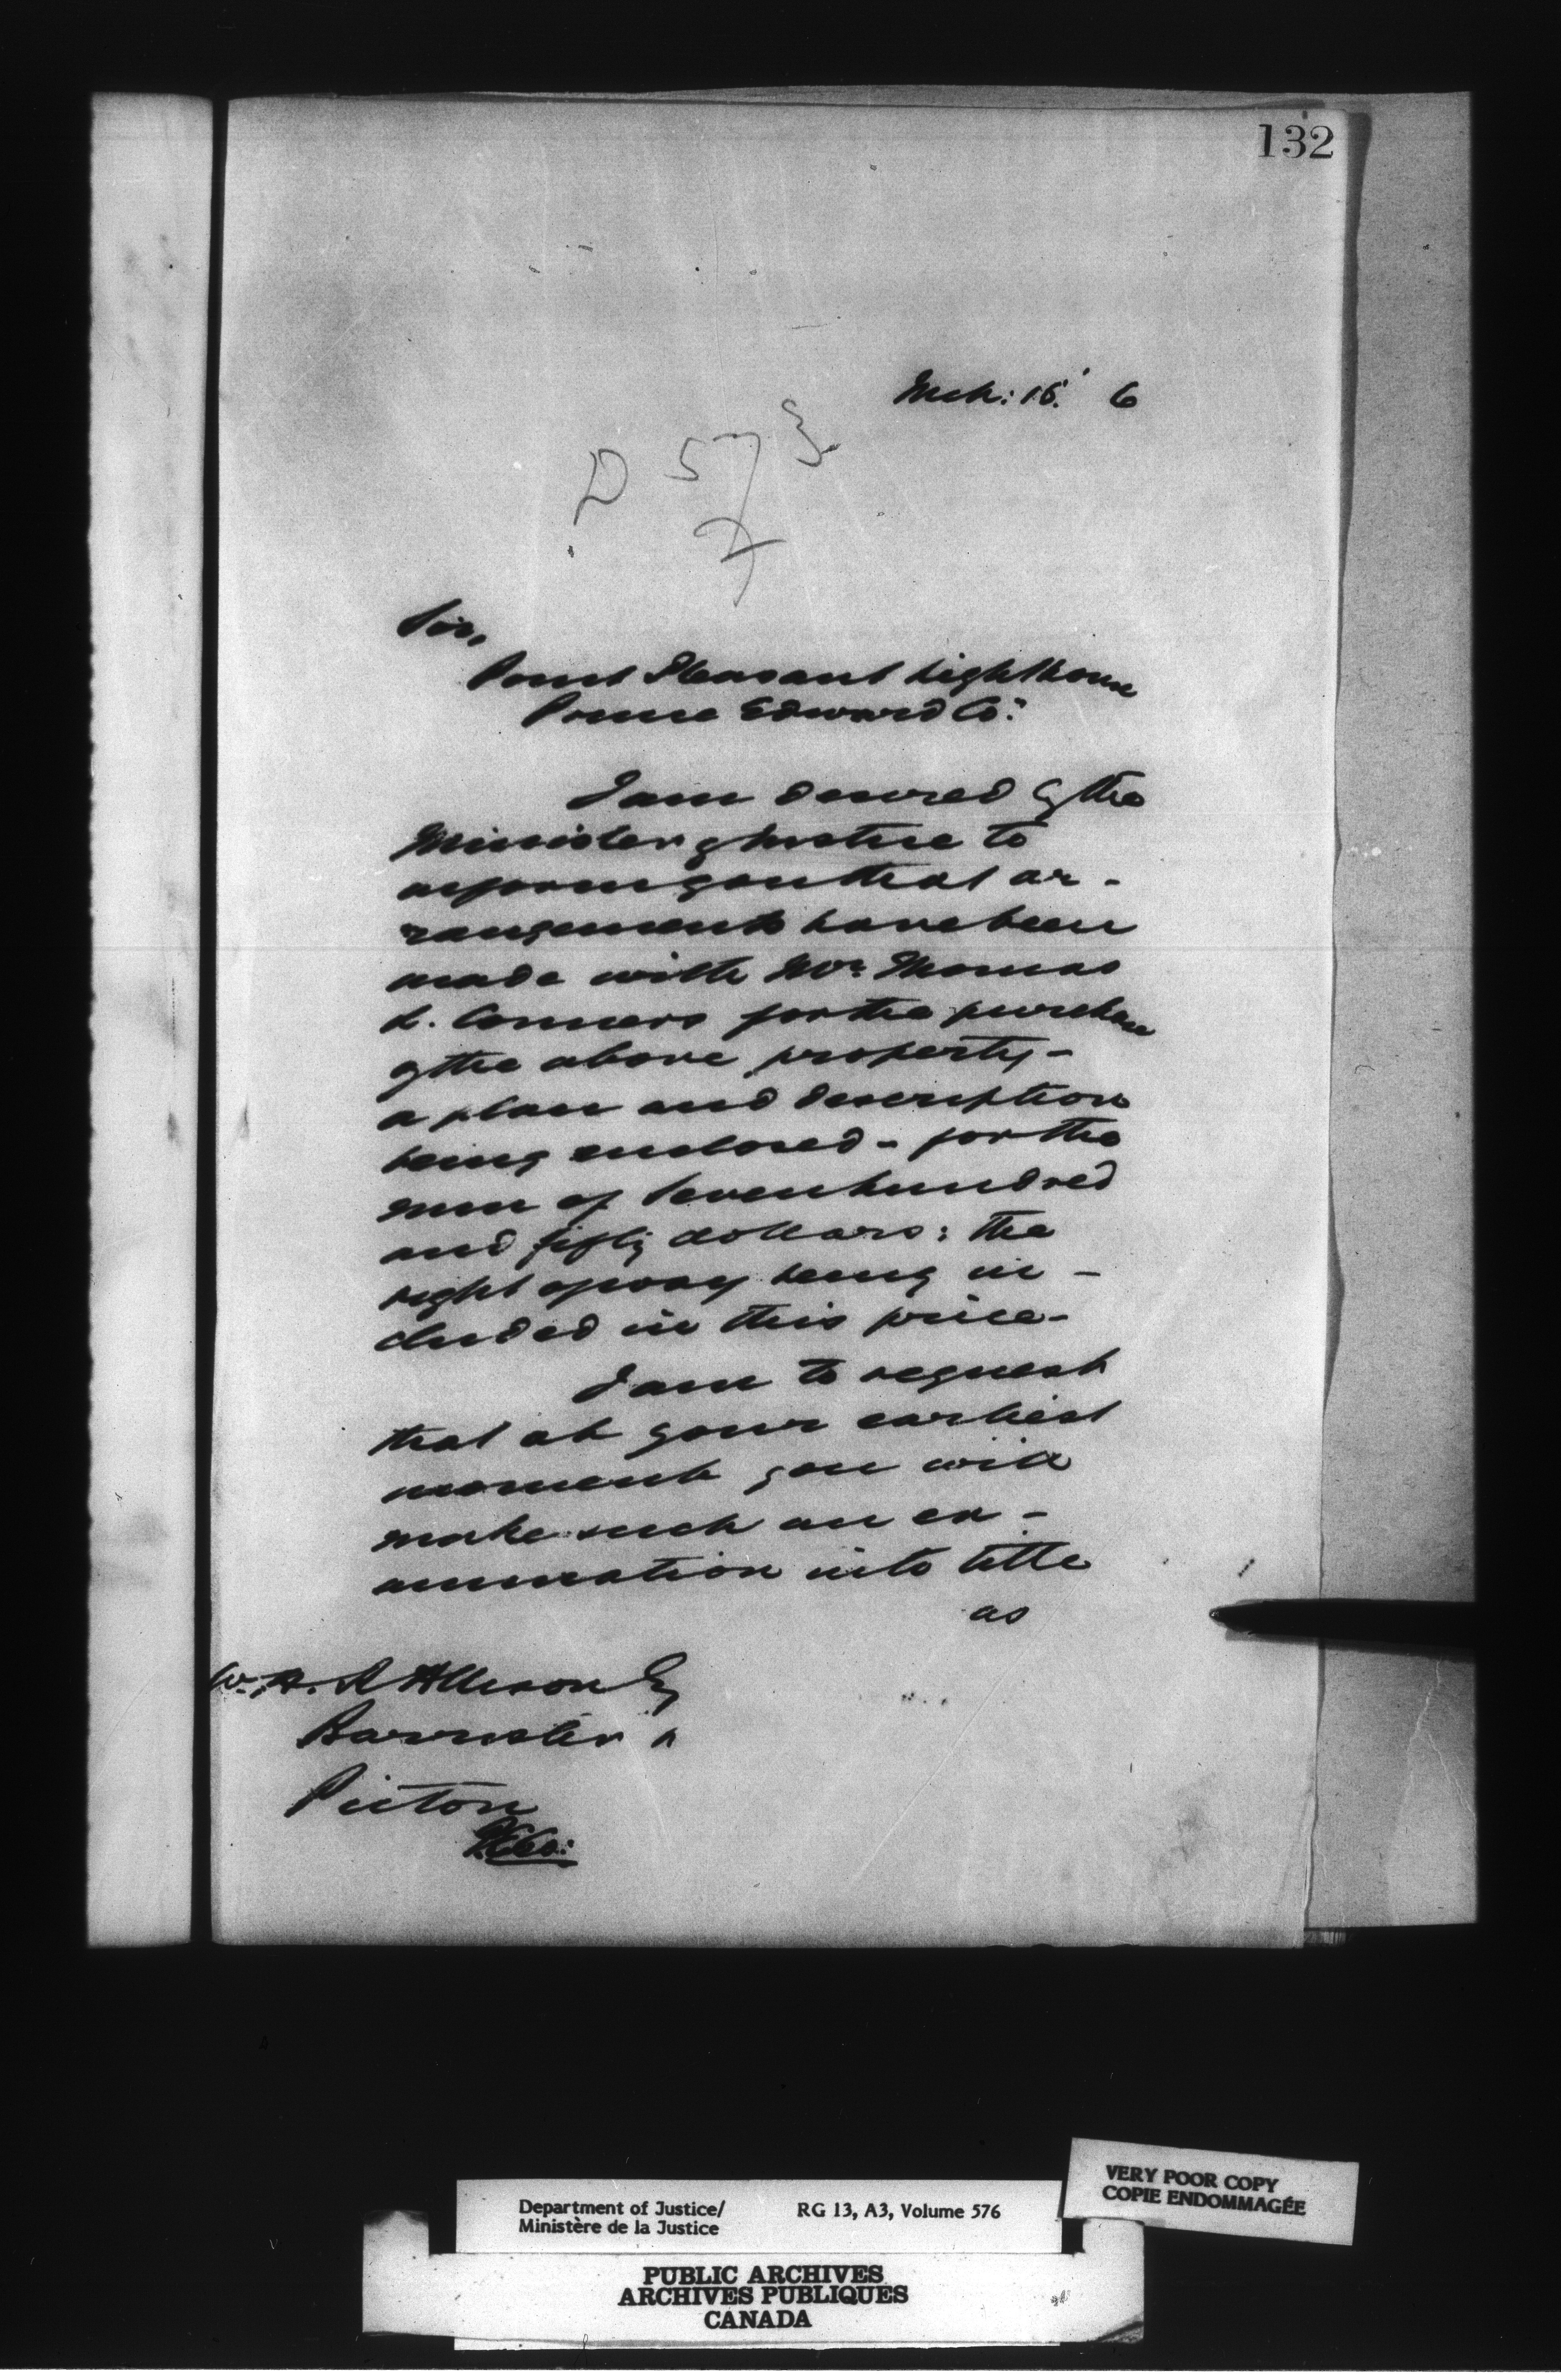 132
Mch: 15. 6
D 573
Sir,
Point Pleasant Lighthouse
Prince Edward Co:
I am desired by the
Minister of Justice to
inform you that ar-
rangements have been
made with Mr. Thomas
L. Conners for the purchase
of the above property-
a plan and description
being enclosed - for the
sum of seven hundred
and fifty dollars: the
right of way being in-
cluded in this price-
I am to request
that at your earliest
moment you will
make such an ex-
amination into title
as
W. H. R. Allison Esq
Barrister
Picton
Department of Justice/ RG 13, A3, Volume 576
Ministère de la Justice
VERY POOR COPY
COPIE ENDOMMAGÉE
PUBLIC ARCHIVES
ARCHIVES PUBLIQUES
CANADA